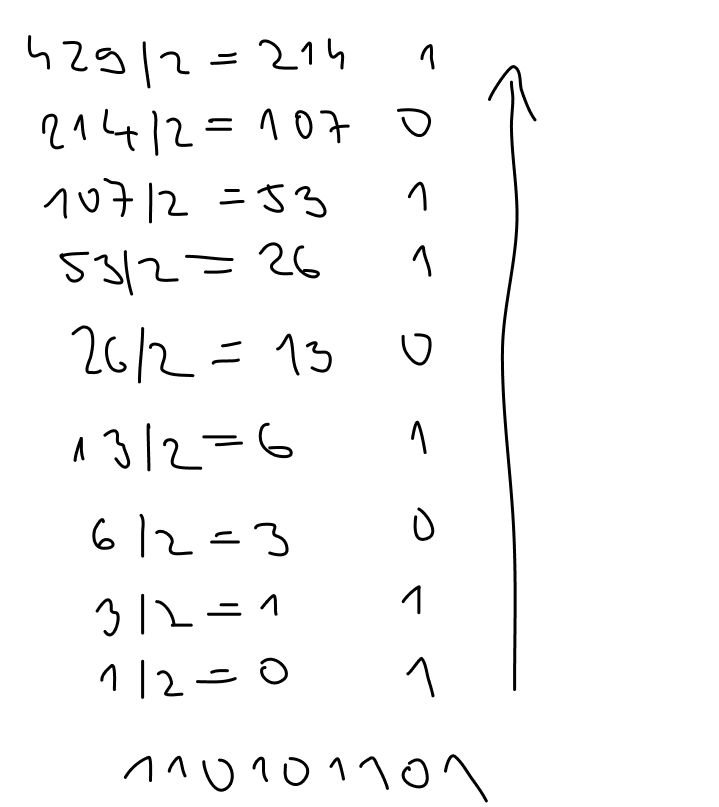 429/2 = 214 1
214/2 = 107 0
107/2 = 53 1
53/2 = 26 1
26/2 = 13 0
13/2 = 6 1
6/2 = 3 0
3/2 = 1 1
1/2 = 0 1
110101101